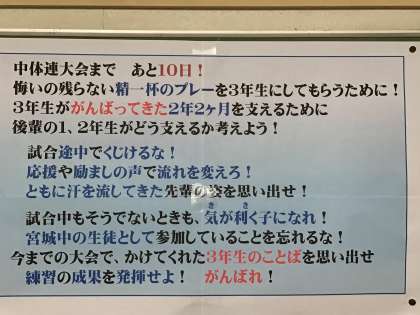 中体連大会まで　あと10日！
悔いの残らない精一杯のプレーを3年生にしてもらうために！
3年生ががんばってきた2年2ヶ月を支えるために
後輩の1、2年生がどう支えるか考えよう！
試合途中でくじけるな！
応援や励ましの声で流れを変えろ！
ともに汗を流してきた先輩の姿を思い出せ！
試合中もそうでないときも、気が利く子になれ！
宮城中の生徒として参加していることを忘れるな！
今までの大会で、かけてくれた3年生のことばを思い出せ
練習の成果を発揮せよ！　がんばれ！